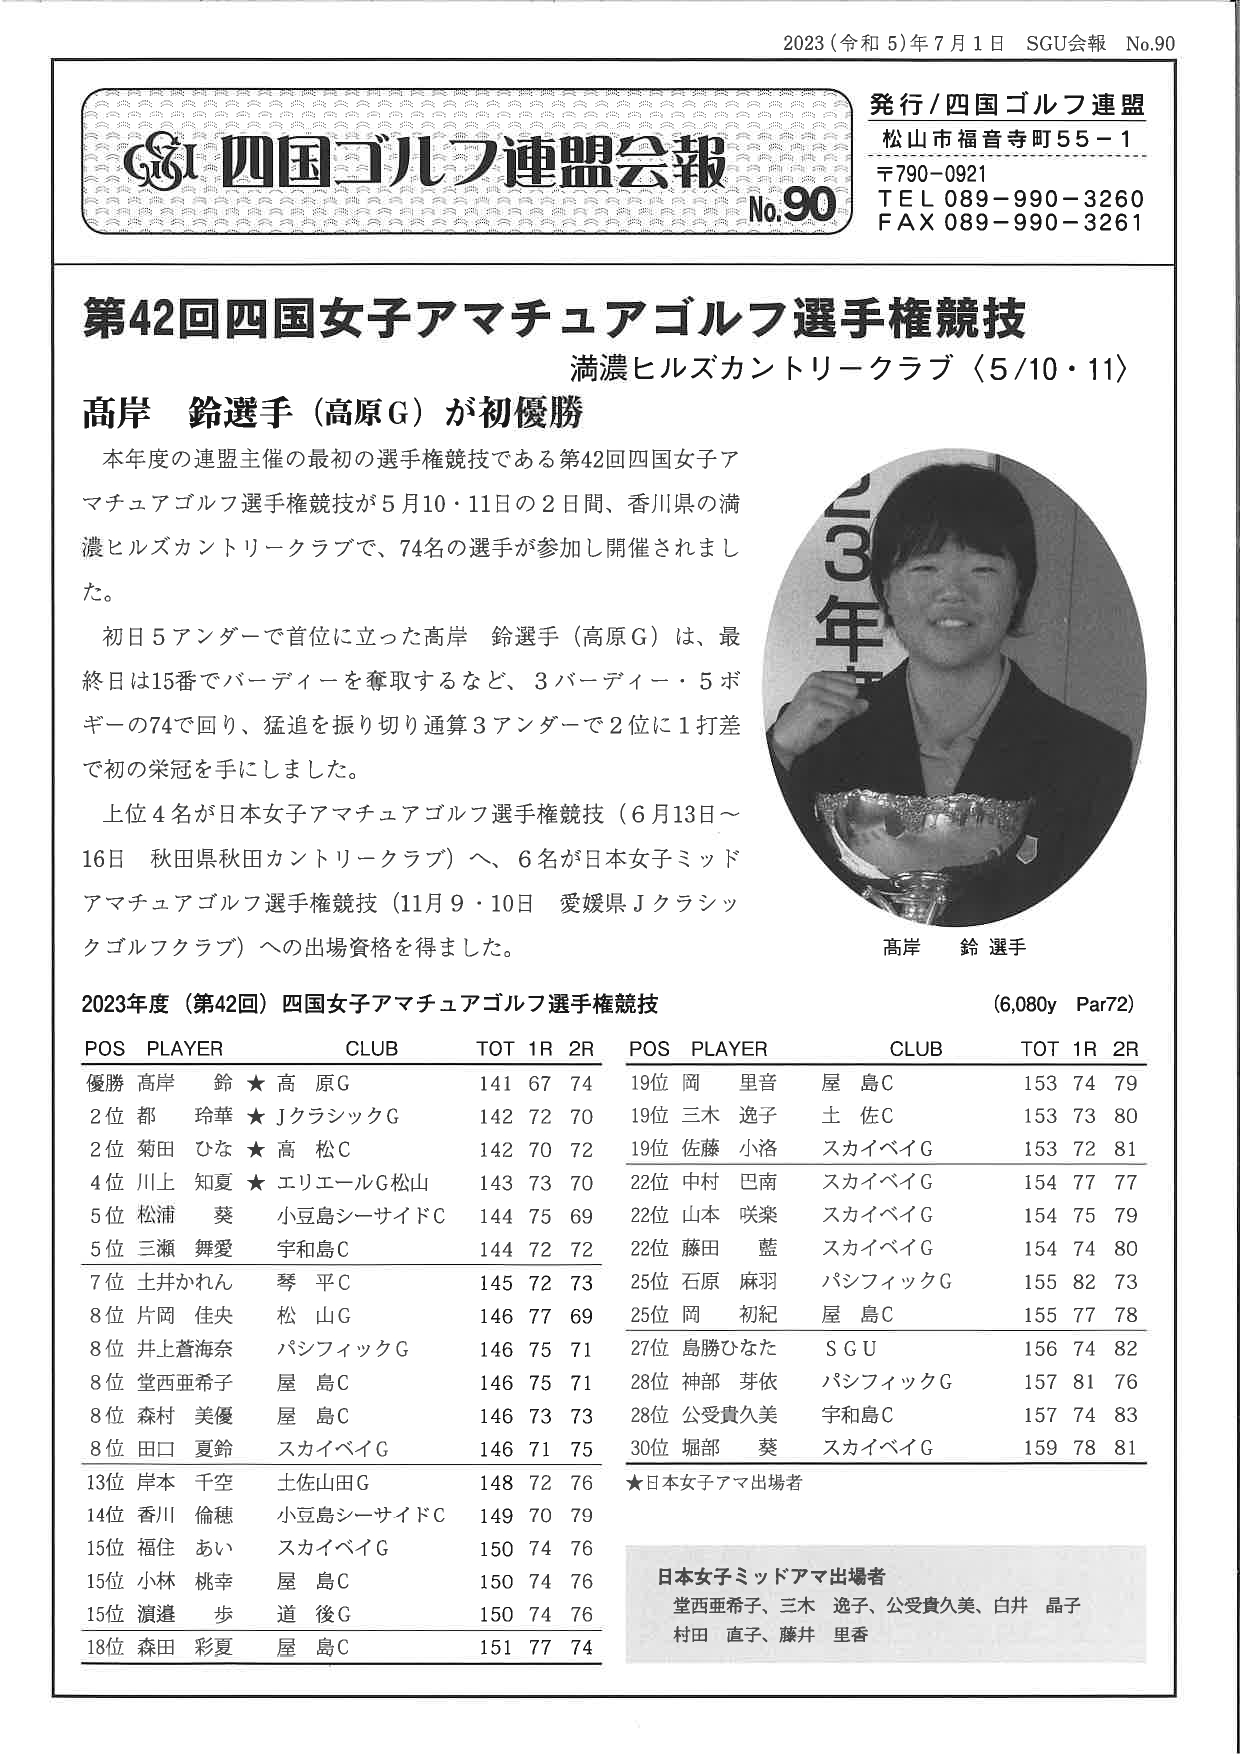 2023(令和5)年7月1日　SGU会報　No.90
四国ゴルフ連盟会報
No.90
発行/四国ゴルフ連盟
松山市福音寺町55－1
〒790-0921
TEL 089－990－3260
FAX 089－990－3261
第42回四国女子アマチュアゴルフ選手権競技
満濃ヒルズカントリークラブ〈5/10・11〉
髙岸　鈴選手（高原G）が初優勝
本年度の連盟主催の最初の選手権競技である第42回四国女子ア
マチュアゴルフ選手権競技が5月10・11日の2日間、香川県の満
濃ヒルズカントリークラブで、74名の選手が参加し開催されまし
た。
初日5アンダーで首位に立った髙岸　鈴選手（高原G）は、最
終日は15番でバーディーを奪取するなど、3バーディー・5ボ
ギーの74で回り、猛追を振り切り通算3アンダーで2位に1打差
で初の栄冠を手にしました。
上位4名が日本女子アマチュアゴルフ選手権競技（6月13日～
16日　秋田県秋田カントリークラブ）へ、6名が日本女子ミッド
アマチュアゴルフ選手権競技（11月9・10日　愛媛県Jクラシッ
クゴルフクラブ）への出場資格を得ました。
23年
髙岸　鈴 選手
2023年度（第42回）四国女子アマチュアゴルフ選手権競技　(6,080y　Par72)
POS PLAYER CLUB TOT 1R 2R
優勝 髙岸　鈴 ★ 高　原G 141 67 74
2位 都　玲華 ★ JクラシックG 142 72 70
2位 菊田　ひな ★ 高　松C 142 70 72
4位 川上　知夏 ★ エリエールG松山 143 73 70
5位 松浦　葵 小豆島シーサイドC 144 75 69
5位 三瀬　舞愛 宇和島C 144 72 72
7位 土井かれん 琴　平C 145 72 73
8位 片岡　佳央 松　山G 146 77 69
8位 井上蒼海奈 パシフィックG 146 75 71
8位 堂西亜希子 屋　島C 146 75 71
8位 森村　美優 屋　島C 146 73 73
8位 田口　夏鈴 スカイベイG 146 71 75
13位 岸本　千空 土佐山田G 148 72 76
14位 香川　倫穂 小豆島シーサイドC 149 70 79
15位 福住　あい スカイベイG 150 74 76
15位 小林　桃幸 屋　島C 150 74 76
15位 濵邉　歩 道　後G 150 74 76
18位 森田　彩夏 屋　島C 151 77 74
POS PLAYER CLUB TOT 1R 2R
19位 岡　里音 屋　島C 153 74 79
19位 三木　逸子 土　佐C 153 73 80
19位 佐藤　小洛 スカイベイG 153 72 81
22位 中村　巴南 スカイベイG 154 77 77
22位 山本　咲楽 スカイベイG 154 75 79
22位 藤田　藍 スカイベイG 154 74 80
25位 石原　麻羽 パシフィックG 155 82 73
25位 岡　初紀 屋　島C 155 77 78
27位 島勝ひなた SGU 156 74 82
28位 神部　芽依 パシフィックG 157 81 76
28位 公受貴久美 宇和島C 157 74 83
30位 堀部　葵 スカイベイG 159 78 81
★日本女子アマ出場者
日本女子ミッドアマ出場者
堂西亜希子、三木　逸子、公受貴久美、白井　晶子
村田　直子、藤井　里香